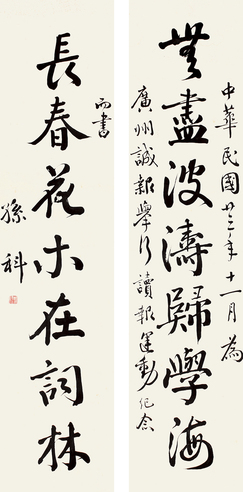 無盡波濤歸學海
中華民國廿三年十一月為
廣州誠報舉行讀報運動紀念
長春花木在詞林
而書
孫科